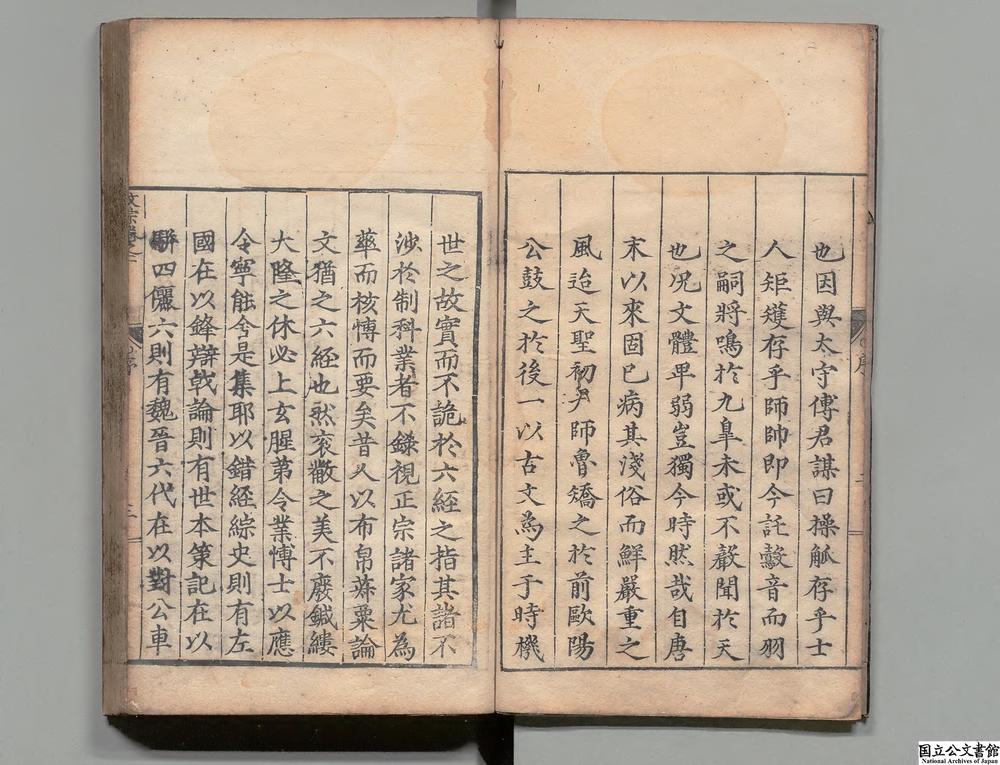 也因與太守傅君謀曰操觚存乎士
人矩矱存乎師帥即今託鷇音而羽
之嗣將鳴於九臯未或不聲聞於天
也况文體卑弱豈獨今時然哉自唐
末以來固已病其淺俗而鮮嚴重之
風迨天聖初尹師魯矯之於前歐陽
公鼓之於後一以古文為主于時機
世之故實而不詭於六經之指其諸不
沙於制科業者不鎌視正宗諸家尤為
華而核博而要矣昔人以布帛菽粟論
文猶之六經也然袞黻之美不廢鍼縷
大隆之休必上玄腥第令業博士以應
令寧能兮是集耶以錯經綜史則有左
國在以鋒辯戟論則有世本策記在以
駢四儷六則有魏晉六代在以對公車
序
三
国立公文書館
National Archives of Japan